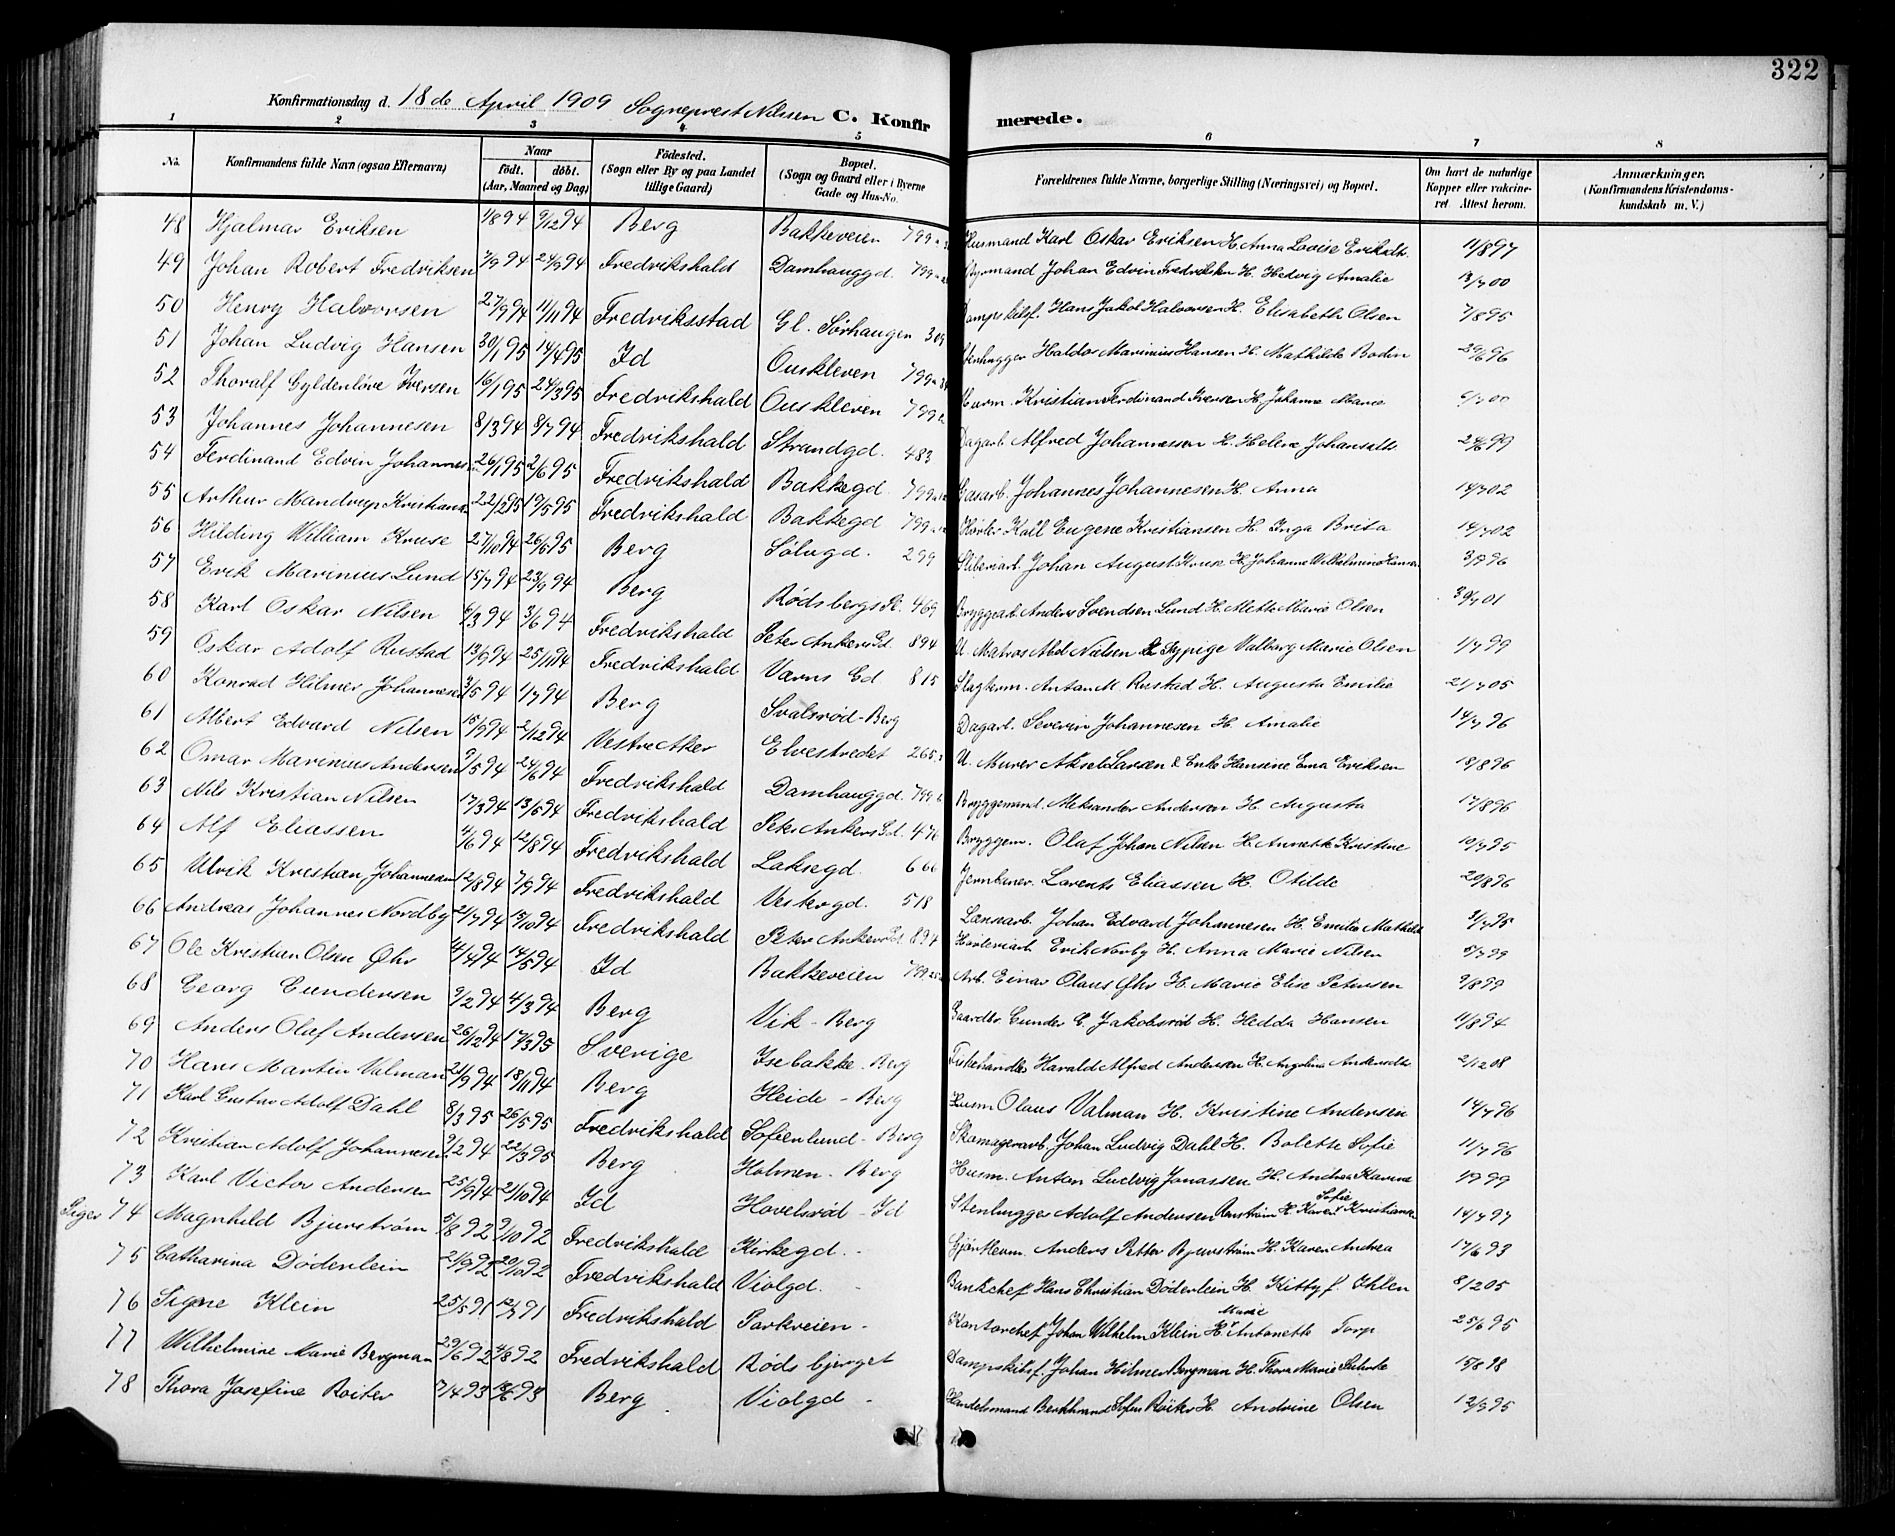 322
Konfirmationsdag d. 18de April 1909 Sogneprest Nilssen C. Konfirmerede.
1 2 3 4 5 6 7 8
No. Konfirmandens fulde Navn (ogsaa Efternavn) Naar født. døbt. (Aar, Maaned og Dag) Födested. (Sogn eller By og paa Landet tillige Gaard) Bopæl. (Sogn og Gaard eller i Byerne Gade og Hus-No. Forældrenes fulde Navne, borgerlige Stilling (Næringsvei) og Bopæl. Om havt de naturlige Kopper eller vakcineret. Attest herom. Anmærkninger. (Konfirmandens Kristendomskundskab m. V.)
48 Hjalmar Eriksen 1/8 94 9/12 94 Berg Bakkeveien 799 Husmand Karl Oskar Eriksen H. Anna Lovise Eriksdt. 11/8 97
49 Johan Robert Fredriksen 7/9 94 24/9 94 Fredrikshald Damhauggd. 799 Johan Edvin Fredriksen H. Hedvig Amalie 13/7 00
50 Henry Halvorsen 27/9 94 11/11 94 Fredriksstad Gl. Sørhaugen 309 Dampskibsf. Hans Jakob Halvorsen H. Elisabeth Olsen 7/8 95
51 Johan Ludvig Hansen 30/1 95 14/4 95 Id Ouskleven 799 Stenhugger Haldor Marinius Hansen H. Mathilde Bodin 29/6 96
52 Thoralf Gyldenløve Iversen 16/1 95 24/3 95 Fredrikshald Ouskleven 799 Kristian Ferdinand Iversen H. Johanne Marie 9/7 00
53 Johannes Johannesen 8/3 94 8/7 94 Fredrikshald Strandgd. 483 Dagarb. Alfred Johannessen H. Helene Johansdt. 24/6 99
54 Ferdinand Edvin Johannes 26/1 95 2/6 95 Fredrikshald Bakkegd. 799 Gasarb. Johannes Johannesen H. Anna 14/7 02
55 Arthur Mandrup Kristians 22/2 95 19/5 95 Fredrikshald Bakkegd 799 Karl Eugene Kristiansen H. Inga Brita 14/7 02
56 Hilding William Kruse 27/10 94 26/6 95 Berg Sølvgd. 299 Sliberiarb. Johan August Kruse H. Johanne Vilhelmine Hansen 3/7 96
57 Erik Marinius Lund 15/7 94 23/9 94 Berg Rødsbergs St. 469 Bryggearb. Anders Svendsen Lund H. Mette Marie Olsen 30/7 01
58 Karl Oskar Nilsen 6/3 94 3/6 94 Fredrikshald Peter Ankers Pd. 894 U. Matros Abel Nielsen & Sypige Valborg Marie Olsen 1/7 99
59 Oskar Adolf Rustad 13/9 94 25/11 94 Fredrikshald Værns Gd 815 Slagterm. Anton M. Rustad H. Augusta Emilie 21/7 05
60 Konrad Hilmer Johannesen 3/5 94 1/7 94 Berg Svalsrød-Berg Dagarb. Severin Johannesen H. Amalie 14/7 96
61 Albert Edvard Nilsen 15/9 94 2/12 94 Vestre Aker Elvestredet 265 U. Murer Aksel Larsen & Enke Hansine Ema Eriksen 18/8 96
62 Omar Marinius Andersen 9/5 94 24/6 94 Fredrikshald Damhauggd. 799 Bryggemand. Aleksander Andersen H. Augusta 17/8 96
63 Nils Kristian Nilsen 17/3 94 13/5 94 Fredrikshald Peter Ankers Pd. 476 Bryggem. Olaf Johan Nilsen H. Annette Kristine 10/7 95
64 Alf Eliassen 4/6 94 12/8 94 Fredrikshald Laksegd. 666 Jernbanev. Lorents Eliassen H. Otilde 20/8 96
65 Ulrik Kristian Johannesen 12/8 94 7/9 94 Fredrikshald Vestergd. 518 Lænsearb. Johan Edvard Johannesen H. Emilie Mathilde 31/7 95
66 Andreas Johannes Nordby 21/7 94 14/10 94 Fredrikshald Peter Ankers Pd. 894 Høvleriarb. Erik Norby H. Anna Marie Nilsen 5/7 99
67 Ole Kristian Olsen Øhr 4/4 94 14/5 94 Id Bakkeveien 799 Arb. Einar Olaus Øhr H. Marie Elise Petersen 9/8 99
68 Georg Gundersen 9/2 94 4/3 94 Berg Vik - Berg Gaardbr. Gunder G. Jakobsrød H. Hedda Hansen 11/8 94
69 Anders Olaf Andersen 26/12 94 17/3 95 Sverige Isebakke - Berg Fiskehandler Harald Alfred Andersen H. Angelina Andersdt. 2/12 08
70 Hans Martin Valman 21/9 94 18/11 94 Berg Heide - Berg Husm Olaus Valman H. Kristine Andersen 14/7 96
71 Karl Gustav Adolf Dahl 8/3 95 26/5 95 Fredrikshald Sofienlund - Berg Skomagerarb. Johan Ludvig Dahl H. Bolette Sofie 11/7 96
72 Kristian Adolf Johannesen 9/2 94 22/3 95 Berg Holmen - Berg Husm. Anton Ludvig Jonassen H. Andrea Karine
73 Karl Victor Andersen 25/9 94 21/10 94 Id Hovelsrød - Id Stenhugger Adolf Andersen H. Karen Sofie Kristiansen 14/7 97
Piger 74 Magnhild Bjurstrøm 5/8 92 9/10 92 Fredrikshald Kirkegd. - Anders Petter Bjurstrøm H. Karen Andrea 17/6 93
75 Catharina Døderlein 21/9 92 20/10 92 Fredrikshald Violgd. - Bankchef Hans Christian Døderlein H. Kitty f. Ihlen 8/2 05
76 Signe Klein 25/5 91 12/7 91 Fredrikshald Parkveien - Kontorchef Johan Wilhelm Klein H. Marie Antonette Torp 25/6 95
77 Wilhelmine Marie Bergman 29/6 92 4/8 92 Fredrikshald Rødsbjerget Dampskibsf. Johan Hilmer Bergman H. Thora Marie 15/8 98
78 Thora Josefine Roiter 7/4 93 18/6 93 Berg Violgd - Handelsmand Berthrand Sofus Røiter H. Andrine Olsen 12/9 95